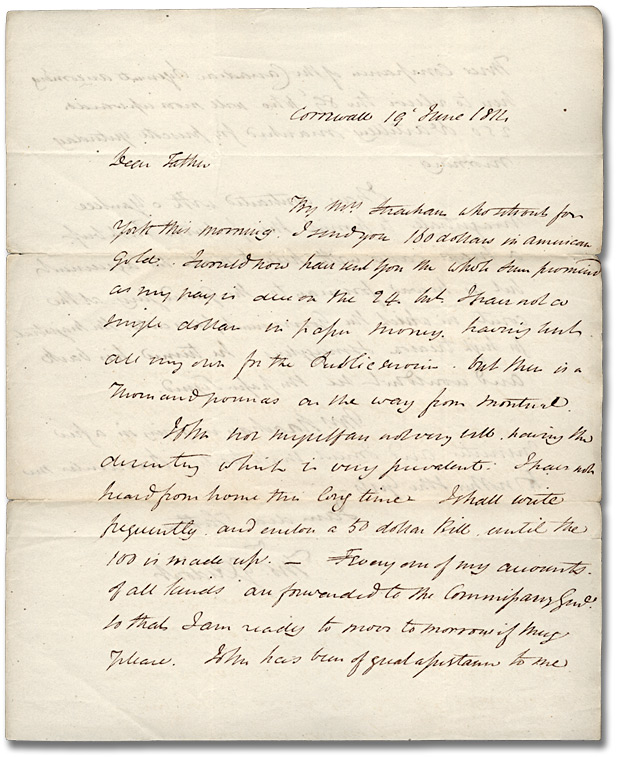 Cornwall 19th June 1814
Dear Father
By Mrs. Strachan who set out for
York this morning I send you 180 dollars in american
gold. I would now have sent you the whole sum promised
as my pay is due on the 24. but I have not a
single dollar in paper money. having lent
all my own for the Public service. but there is a
Thousand pounds on the way from Montreal.
John nor myself are not very well. having the
dysentery which is very prevalent. I have not
heard from home this long time. I shall write
frequently. and enclose a 50 dollar Bill. until the
100 is made up. — Every one of my accounts
of all kinds are forwarded to the Commissary Genl.
so that I am ready to move tomorrow if they
please. John has been of great assistance to me